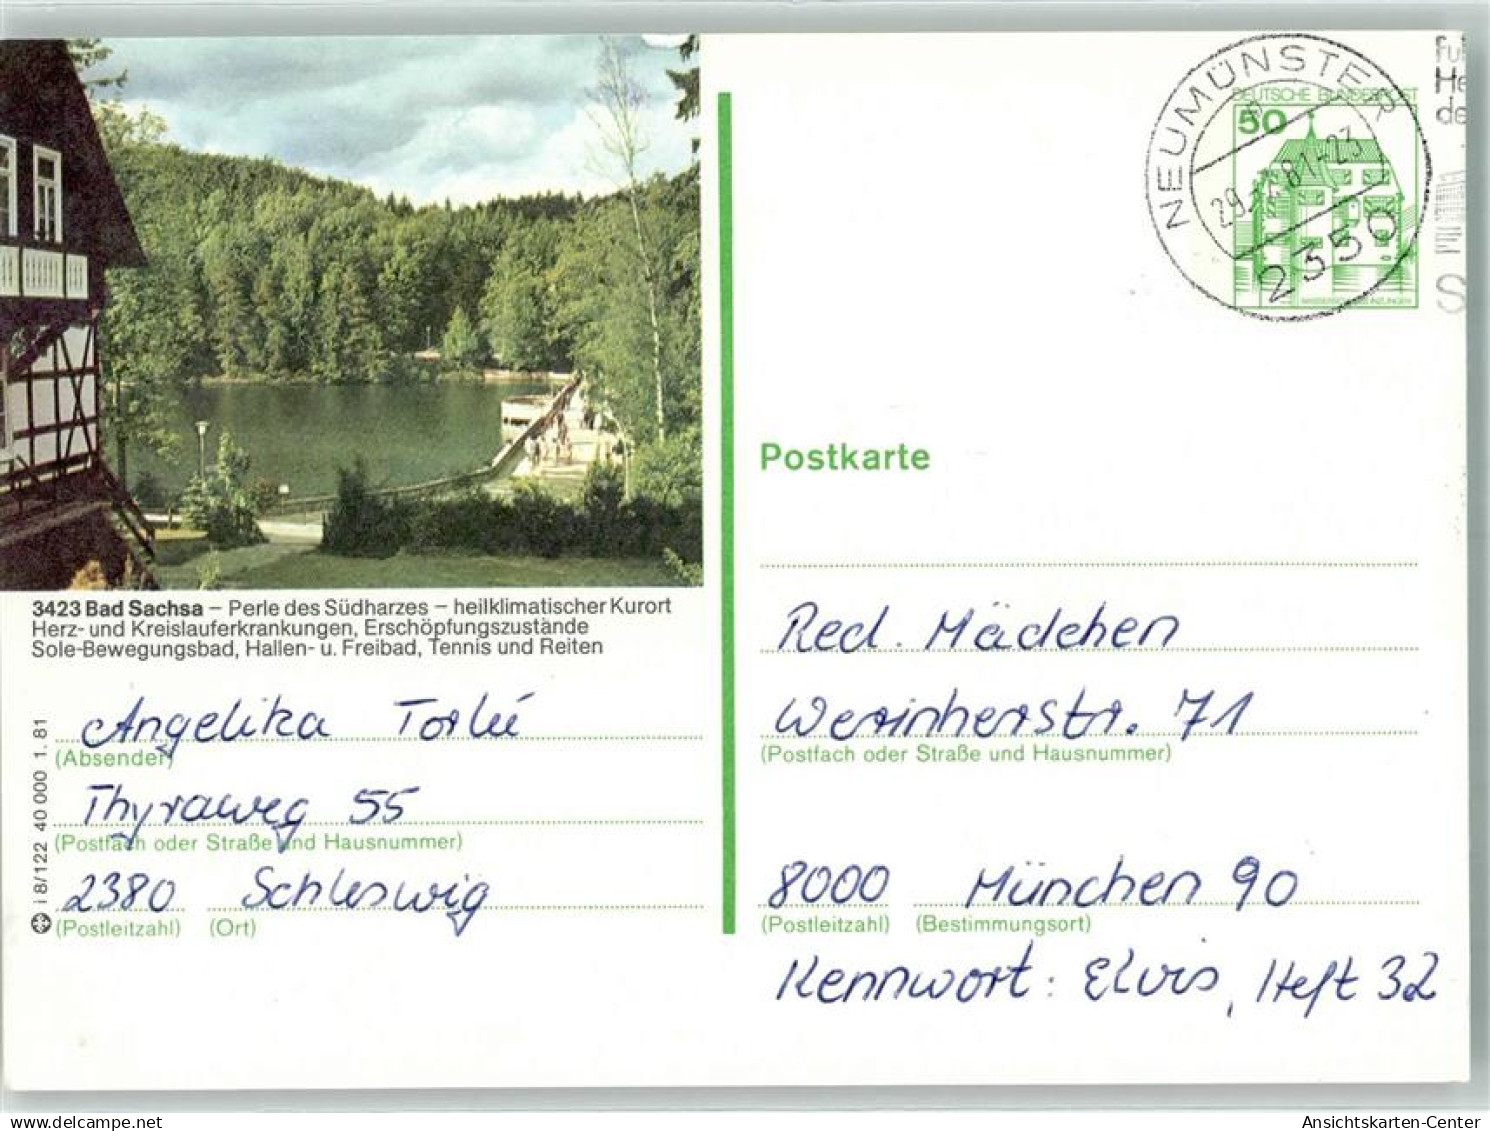 3423 Bad Sachsa – Perle des Südharzes – heilklimatischer Kurort
Herz- und Kreislauferkrankungen, Erschöpfungszustände
Sole-Bewegungsbad, Hallen- u. Freibad, Tennis und Reiten
Angelika
(Absender)
Thyraweg 55
(Postfach oder Straße und Hausnummer)
2380 Schleswig
(Postleitzahl) (Ort)
i 8/122 40 000 1.81
NEUMÜNSTER
81-23
2350
DEUTSCHE BUNDESPOST
50
Postkarte
Red. Mädchen
Werinherstr. 71
(Postfach oder Straße und Hausnummer)
8000 München 90
(Postleitzahl) (Bestimmungsort)
Kennwort: Elvis, Heft 32
delcampe.net
Ansichtskarten-Center